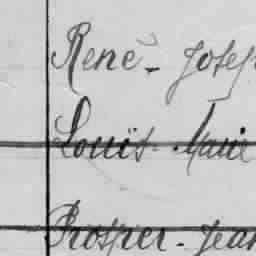 René - Josep
Louis - Marie
Prosper - Jean